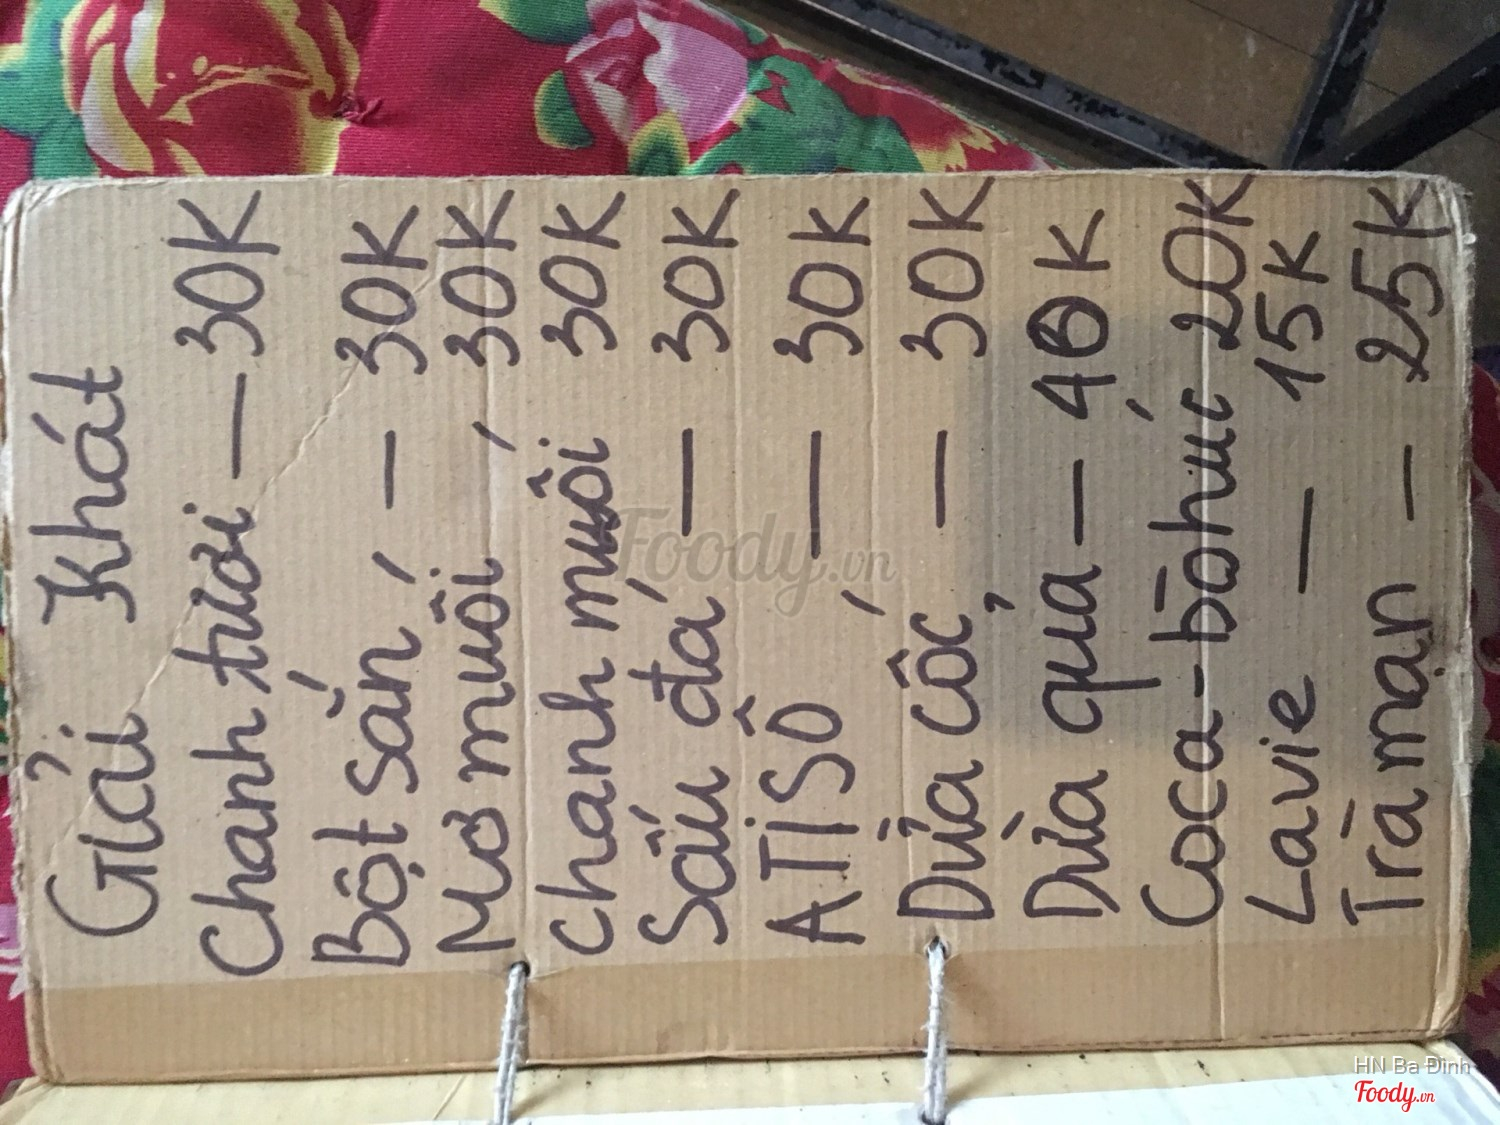 Giải Khát
Chanh tươi — 30K
Bột sắn — 30K
Mơ muối 30K
chanh muối 30K
Sấu đá — 30K
ATISÔ — 30K
Dừa cốc — 30K
Dừa quả — 40K
Coca - bò húc 20K
Lavie — 15K
Trà mạn — 25K
Foody.vn
HN Ba Đình
Foody.vn